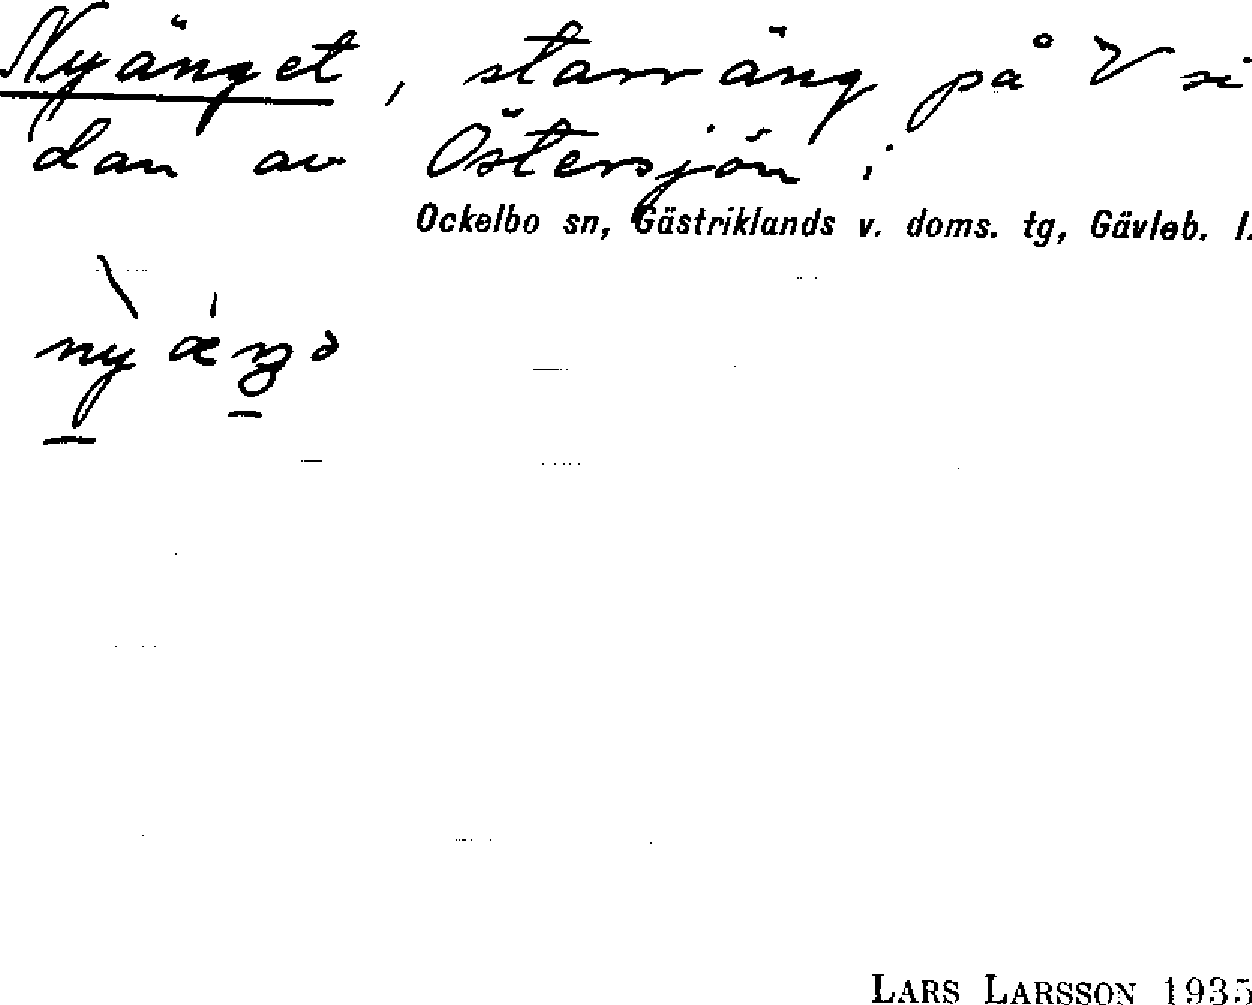 Nyänget, starräng på V si
dan av Östersjön i
Ockelbo sn, Gästriklands v. doms. tg, Gävleb. l.
LARS LARSSON 1935